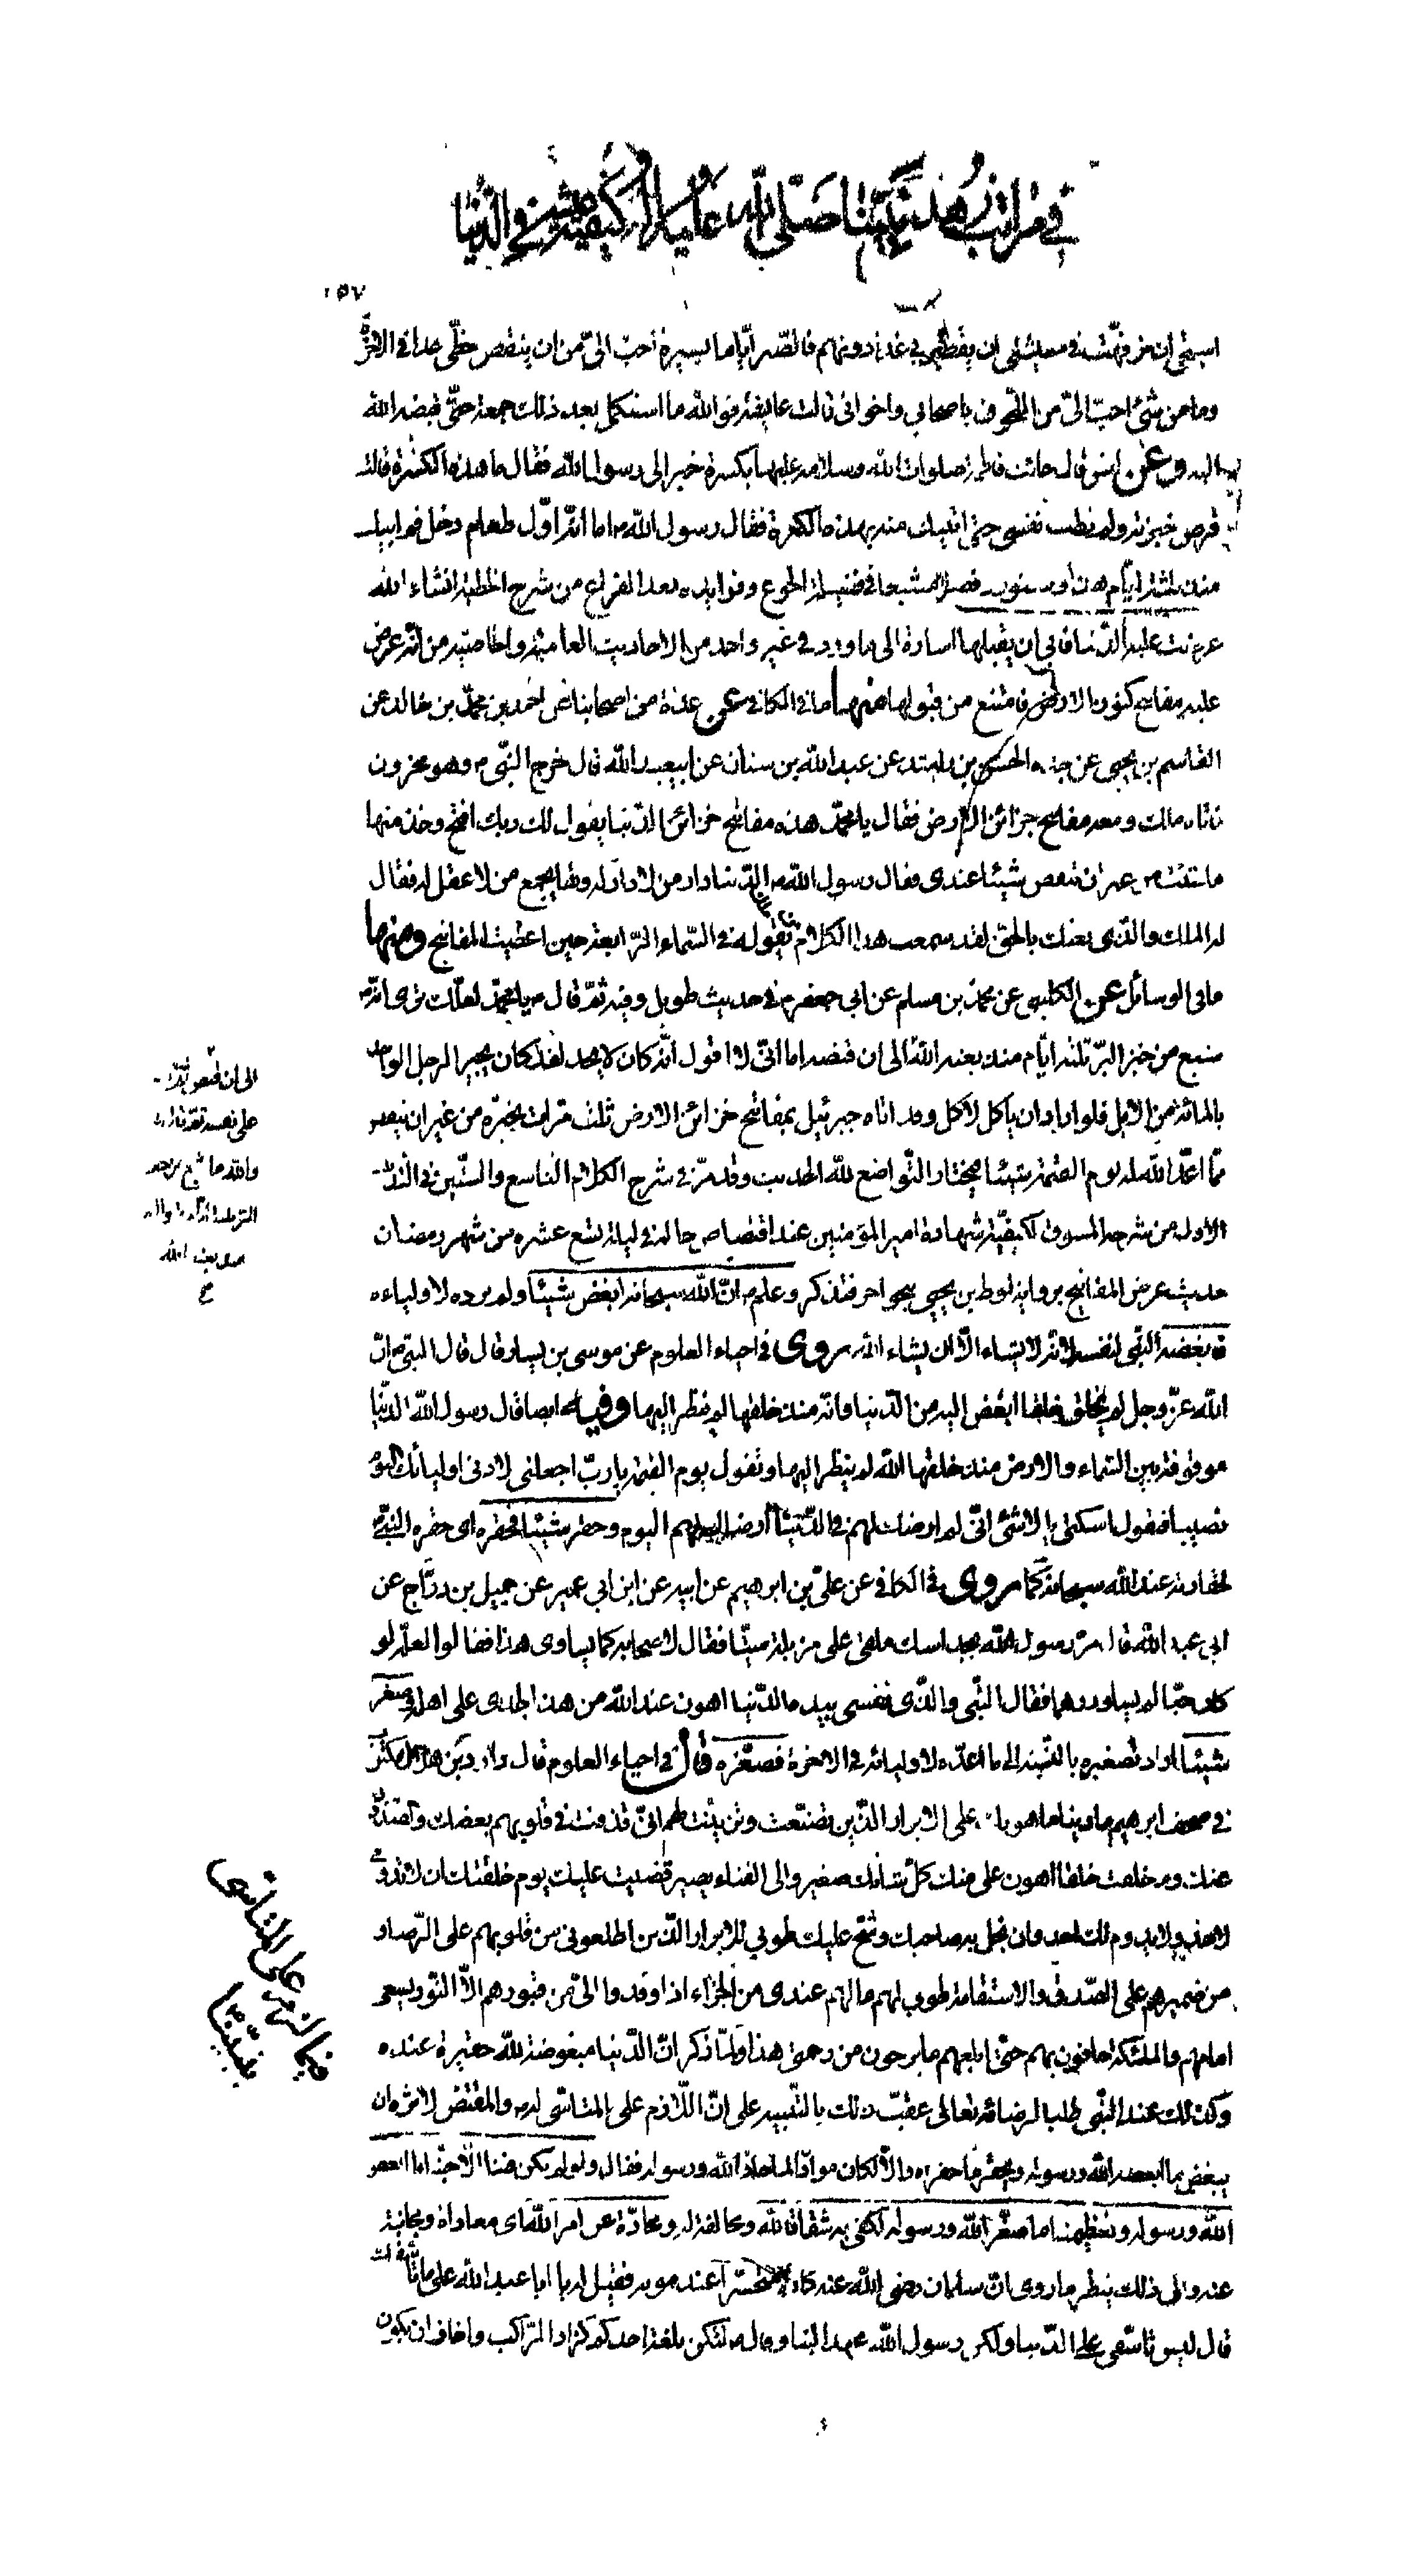 في مراتب زهد نبينا صلى الله عليه وآله وكيفية عيشه في الدنيا
١٥٧
استحيى ان ترفهت في معيشتى ان يقصر بي غدا دونهم فاصبر أياما يسيرة أحب الىّ من ان ينقص حظّى غدا في الآخرة
وما من شيء احبّ الىّ من اللحوق باصحابي واخواني قالت عايشة فوالله ما استكمل بعد ذلك جمعة حتّى قبضه الله
اليه وعن انس قال جائت فاطمة صلوات الله وسلامه عليها بكسرة خبز الى رسول الله فقال ما هذه الكسرة قالت
قرص خبزته ولم تطب نفسى حتى اتيتك منه بهذه الكسرة فقال رسول الله اما انّه اوّل طعام دخل فم ابيك
منذ ثلثة ايّام هذا وسنورد فصلا مشبعا في فضيلة الجوع وفوايده بعد الفراغ من شرح الخطبة انشاء الله
عرضت عليه الدّنيا فابى ان يقبلها اشارة الى ما ورد في غير واحد من الاحاديث العامية والخاصية من انّه عرض
عليه مفاتيح كنوز الارض فامتنع من قبولها منها ما في الكافي عن عدّة من اصحابنا عن احمد بن محمّد بن خالد عن
القاسم بن يحيى عن جدّه الحسن بن راشد عن عبد الله بن سنان عن ابيعبد الله قال خرج النّبى وهو محزون
فاتاه ملك ومعه مفاتيح خزائن الارض فقال يا محمّد هذه مفاتيح خزائن الدّنيا يقول لك ربك افتح وخذ منها
ما شئت من غير ان تنقص شيئا عندى فقال رسول الله الدّنيا دار من لا دار له ولها يجمع من لا عقل له فقال
له الملك والّذى بعثك بالحق لقد سمعت هذا الكلام من ملك يقوله في السّماء الرّابعة حين اعطيت المفاتيح ومنها
ما في الوسائل عن الكلينى عن محمّد بن مسلم عن ابي جعفر في حديث طويل وفيه ثمّ قال يا محمّد لعلّك ترى انّه
شبع من خبز البرّ ثلثة ايّام منذ بعثه الله الى ان قبضه اما انّى لا اقول انّه كان لا يجد لقد كان يجيز الرجل الواحد
بالمائة من الابل فلو اراد ان ياكل لاكل وقد اتاه جبرئيل بمفاتيح خزائن الارض ثلث مرات يخيّره من غير ان ينقصه
ممّا اعدّ الله له يوم القيمة شيئا فيختار التّواضع لله الحديث وقد مرّ في شرح الكلام التاسع والستين في التذ
الاول من شرحه المسوق لكيفيّة شهادة امير المؤمنين عند اقتصاص حاله في ليلة تسع عشره من شهر رمضان
حديث عرض المفاتيح برواية لوط بن يحيى بنحو آخر فتذكر وعلم انّ الله سبحانه ابغض شيئا ولم يرده لاوليائه
فابغضه النّبى لنفسه لانّه لا يشاء الّا ان يشاء الله روى في احياء العلوم عن موسى بن يسار قال قال النبى انّ
الله عزّ وجل لم يخلق خلقا ابغض اليه من الدّنيا وانّه منذ خلقها لم ينظر اليها وفيه ايضا قال رسول الله الدنيا
موقوفة بين السّماء والارض منذ خلقها الله لم ينظر اليها وتقول يوم القيمة يا ربّ اجعلنى لادنى اوليائك اليوم
نصيبا فيقول اسكتى يا لا شئ انّى لم ارضك لهم في الدّنيا أرضاك لهم اليوم وحقر شيئا فحقره اى حقره النبى
لحقارته عند الله سبحانه كما روى في الكافي عن علىّ بن ابرهيم عن ابيه عن ابن ابي عمير عن جميل بن درّاج عن
ابى عبد الله قال مرّ رسول الله بجدى اسك ملقى على مزبلة ميتا فقال لاصحابه كم يساوى هذا فقالوا لعلّه لو
كان حيّا لم يساو درهما فقال النّبى والّذى نفسى بيده الدّنيا اهون عند الله من هذا الجدى على اهله وصغّر
شيئا اراد تصغيره بالنّسبة الى ما اعدّه لاوليائه في الآخرة فصغّره قال في احياء العلوم قال داود بن هلال مكتوب
في صحف ابرهيم يا دنيا ما اهونك على الابرار الّذين تصنّعت وتزيّنت لهم انّى قذفت في قلوبهم بغضك والصّدّ
عنك وما خلقت خلقا اهون علىّ منك كلّ شأنك صغير والى الفناء يصير قضيت عليك يوم خلقتك ان لا تدومى
لاحد ولا يدوم لك احد وان بخل بك صاحبك وشحّ عليك طوبى للابرار الّذين اطلعونى من قلوبهم على الرّضا و
من ضميرهم على الصّدق والاستقامة طوبى لهم ما لهم عندى من الجزاء اذا وفدوا الىّ من قبورهم الّا النّور يسعى
امامهم والملئكة حافون بهم حتّى ابلغهم ما يرجون من رحمتى هذا ولمّا ذكر انّ الدّنيا مبغوضة لله حقيرة عنده
وكذلك عند النّبى طلبا لرضائه تعالى عقبّ ذلك بالتّنبيه على انّ اللّازم على المتاسّى له والمقتص لاثره ان
يبغض ما ابغضه الله ورسوله ويحقّر ما حقراه والّا لكان موادّا لما حادّ الله ورسوله فقال ولو لم يكن فينا الّا حبّنا ما ابغض
الله ورسوله وتعظيمنا ما صغّر الله ورسوله لكفى به شقاقا لله ومخالفة له ومحادّة عن امر الله اى معاداة ومجانبة
عنه والى ذلك ينظر ما روى انّ سلمان رضى الله عنه كان متحسّرا عند موته فقيل له يا ابا عبد الله على ما تأسّفك
قال ليس تاسّفى على الدّنيا ولكن رسول الله عهد الينا وقال لتكن بلغة احدكم كزاد الرّاكب واخاف ان نكون
الى ان قبضه ثمّ ردّ
على نفسه ثمّ قال لا
والله ما شبع من خبز
البرّ ثلثة ايّام متوالية
منذ بعثه الله
فيما لزم على الناس
نبيّنا